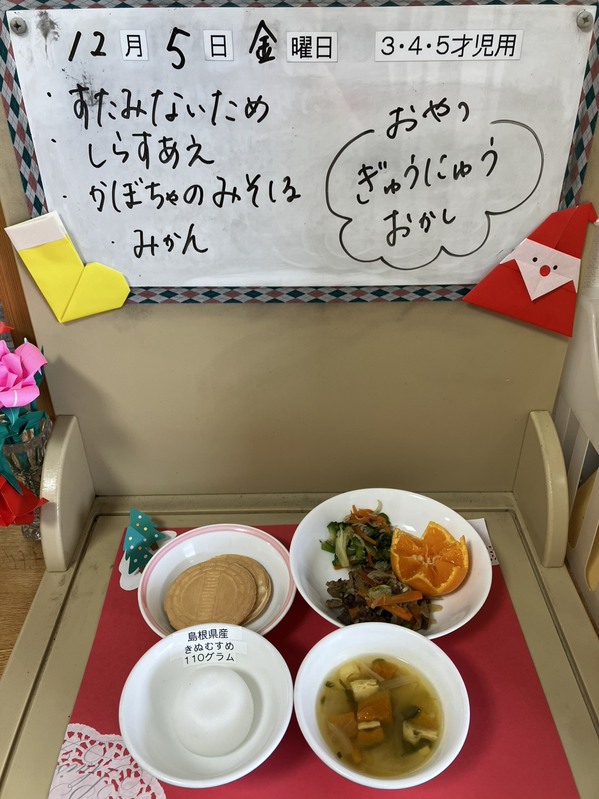 12月5日金曜日 3・4・5才児用
・すたみないため
・しらすあえ
・かぼちゃのみそしる
・みかん
おやつ
ぎゅうにゅう
おかし
島根県産
きぬむすめ
110グラム